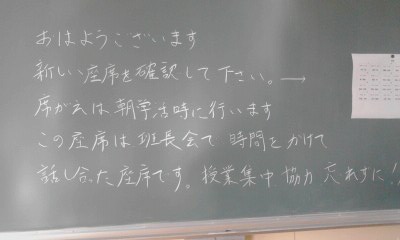 おはようございます
新しい座席を確認して下さい。→
席がえは朝学活時に行います
この座席は班長会で時間をかけて
話し合った座席です。授業集中 協力 忘れずに!!